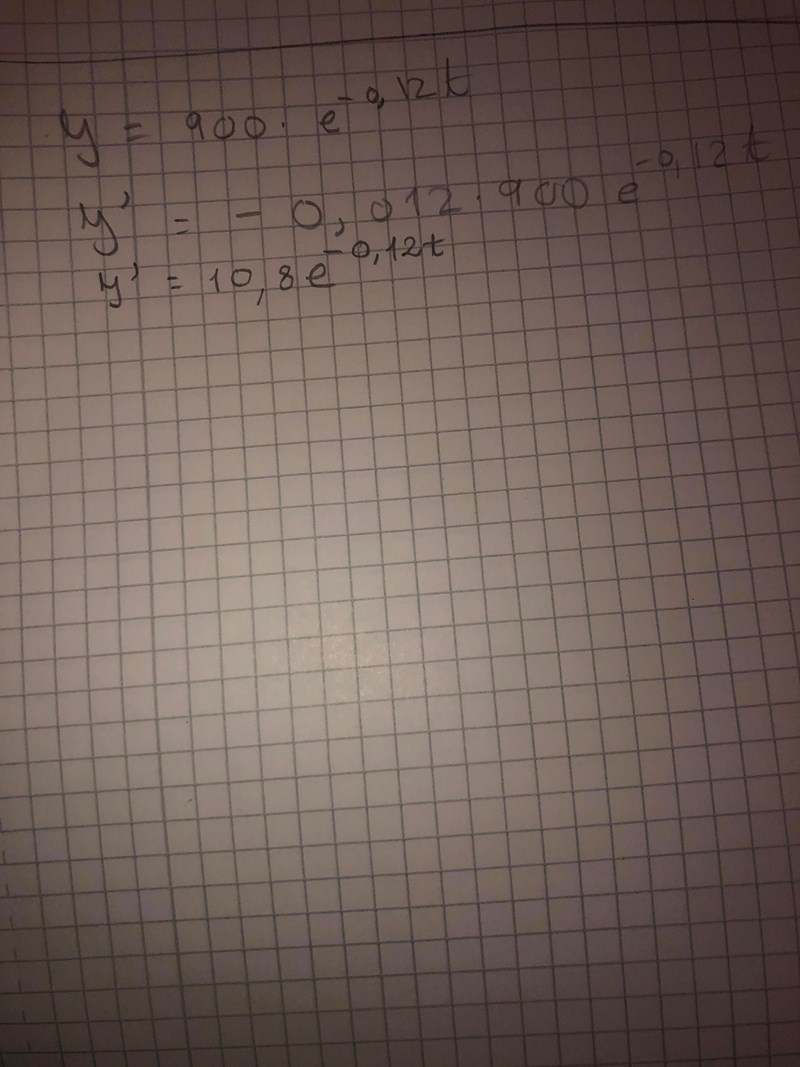 y = 900 · e^-0,12t
y' = - 0,012 · 900 e^-0,12t
y' = 10,8e^-0,12t